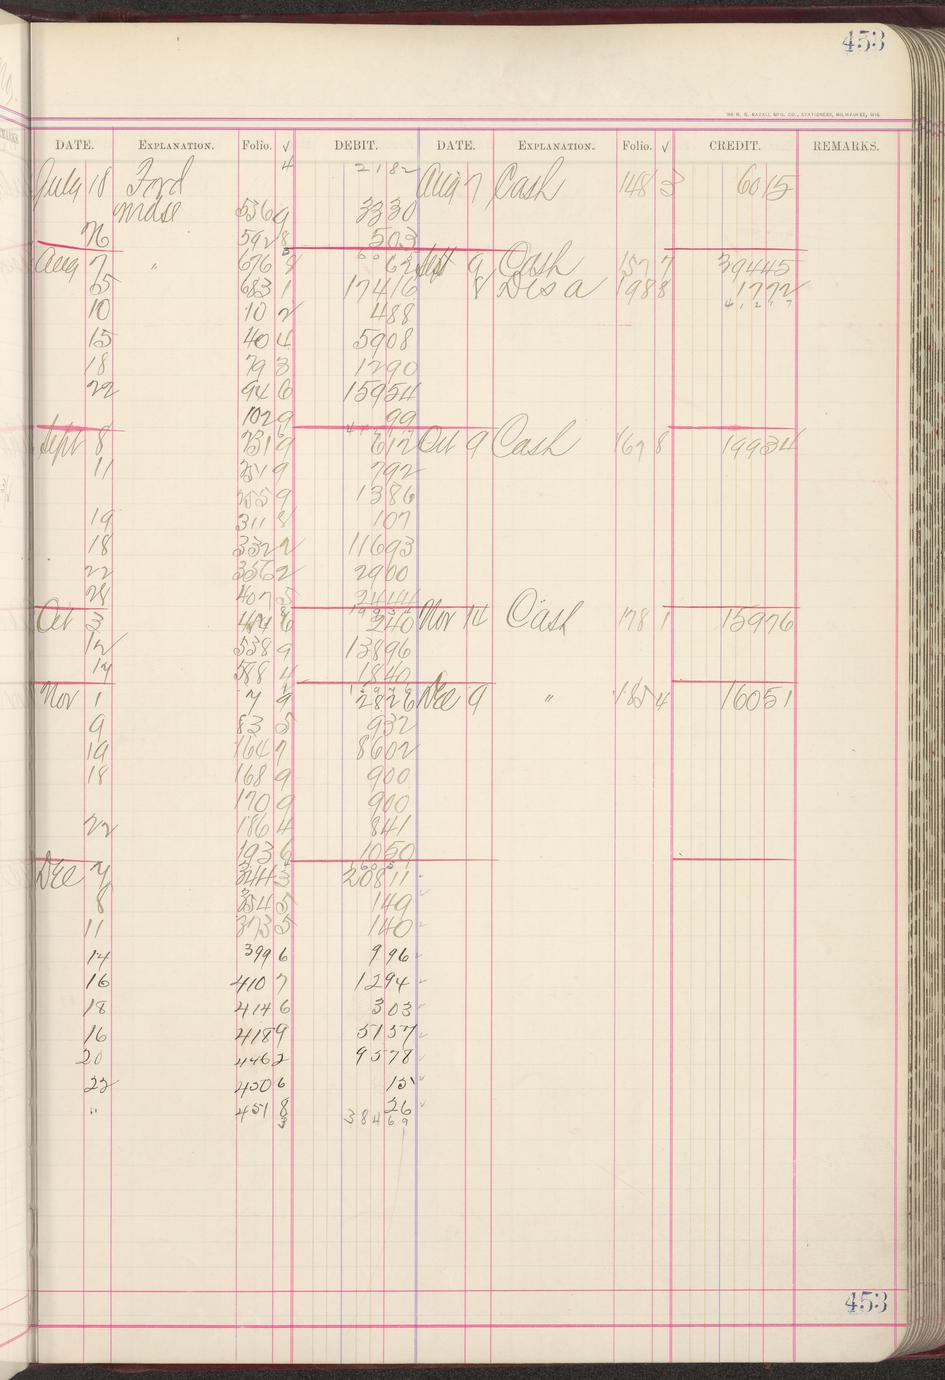 453
DATE. EXPLANATION. Folio. √ DEBIT. DATE. EXPLANATION. Folio. √ CREDIT. REMARKS.
July 18 Ford 4 2182 Aug 7 Cash 148 3 6015
mdse 536 9 3330
26 592 8 503
Aug 7 " 676 8 62 Sept 9 Cash 157 7 39445
683 1 17416 8 Disa 198 8 1772
41217
10 10 2 488
15 40 4 5908
18 79 3 1290
22 94 6 15954
102 9 99
Sept 8 231 9 612 Oct 9 Cash 167 8 19934
11 251 9 792
255 9 1386
19 311 8 107
18 332 2 11693
22 356 2 2900
28 407 5 2444
Oct 3 474 6 240 Nov 14 Cash 178 1 15976
12 538 9 13896
17 588 4 1840
Nov 1 7 9 2826 Dec 9 " 185 4 16051
9 83 5 932
19 164 7 8602
18 168 9 900
170 9 900
22 186 4 841
193 6 1050
Dec 7 344 3 20811
8 354 5 149
11 373 5 140
14 399 6 996
16 410 7 1294
18 414 6 303
16 418 9 5157
20 446 2 9578
22 450 6 15
" 451 8 26
3 38469
453